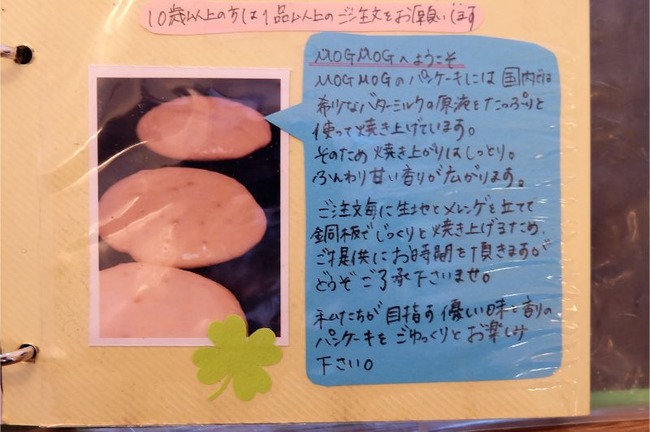 10歳以上の方は1品以上のご注文をお願いします
MOGMOGへようこそ
MOGMOGのパンケーキには国内では
希少なバターミルクの原液をたっぷりと
使って焼き上げています。
そのため焼き上がりはしっとり。
ふんわり甘い香りが広がります。
ご注文毎に生地とメレンゲを立てて
銅板でじっくりと焼き上げるため、
ご提供にお時間を頂きますが
どうぞご了承下さいませ。
私たちが目指す優しい味と香りの
パンケーキをごゆっくりとお楽しみ
下さい。